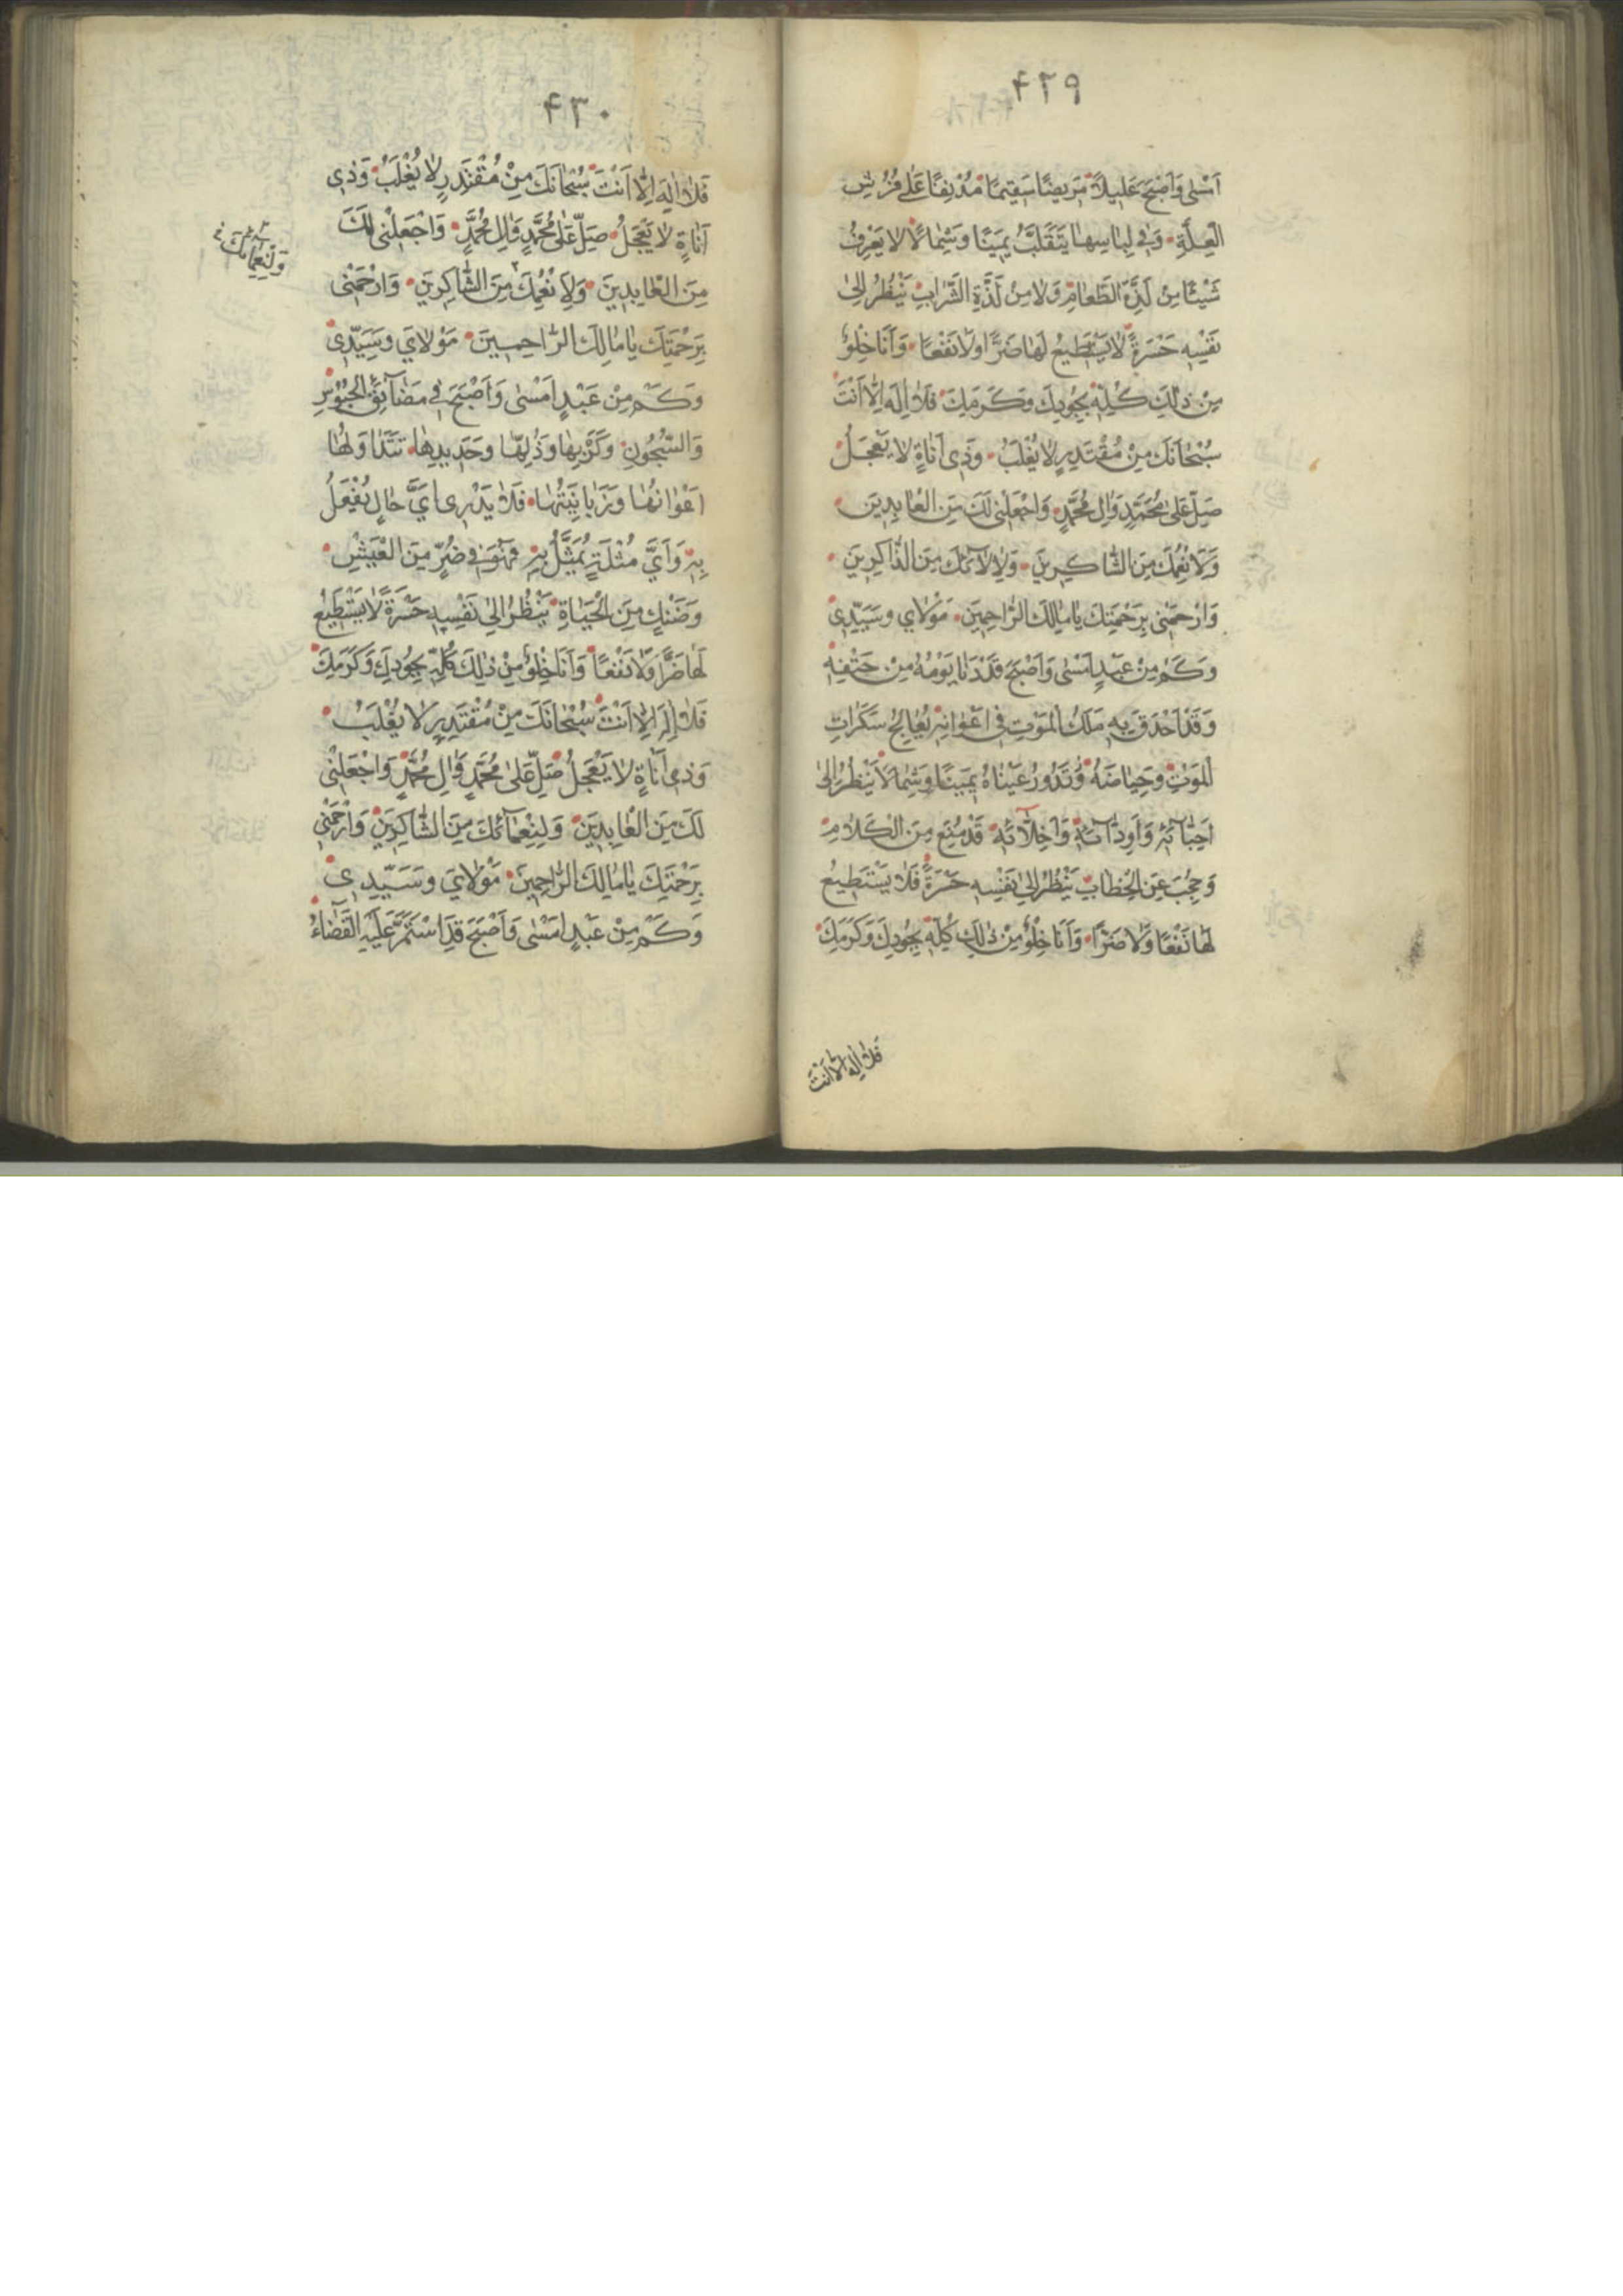 ۴۲۹
اَمْسٰى وَاَصْبَحَ عَلِيلاً مَرِيضًا سَقِيمًا مُدْنِفًا عَلٰى فُرُشِ
الْعِلَّةِ وَفِى لِبَاسِهَا يَتَقَلَّبُ يَمِينًا وَشِمَالًا لَا يَعْرِفُ
شَيْئًا مِنْ لَذَّةِ الطَّعَامِ وَلَا مِنْ لَذَّةِ الشَّرَابِ يَنْظُرُ اِلٰى
نَفْسِهِ حَسْرَةً لَا يَسْتَطِيعُ لَهَا ضَرًّا وَلَا نَفْعًا وَاَنَا خِلْوٌ
مِنْ ذٰلِكَ كُلِّهِ بِجُودِكَ وَكَرَمِكَ فَلَا اِلٰهَ اِلَّا اَنْتَ
سُبْحَانَكَ مِنْ مُقْتَدِرٍ لَا يُغْلَبُ وَذِى اَنَاةٍ لَا يَعْجَلُ
صَلِّ عَلٰى مُحَمَّدٍ وَاٰلِ مُحَمَّدٍ وَاجْعَلْنِى لَكَ مِنَ الْعَابِدِينَ
وَلِاَنْعُمِكَ مِنَ الشَّاكِرِينَ وَلِاٰلَائِكَ مِنَ الذَّاكِرِينَ
وَارْحَمْنِى بِرَحْمَتِكَ يَا مَالِكَ الرَّاحِمِينَ مَوْلَايَ وَسَيِّدِى
وَكَمْ مِنْ عَبْدٍ اَمْسٰى وَاَصْبَحَ قَدْ دَنَا يَوْمُهُ مِنْ حَتْفِهِ
وَقَدْ اَحْدَقَ بِهِ مَلَكُ الْمَوْتِ فِى اَعْوَانِهِ يُعَالِجُ سَكَرَاتِ
الْمَوْتِ وَحِيَاضَهُ وَتَدُورُ عَيْنَاهُ يَمِينًا وَشِمَالًا يَنْظُرُ اِلٰى
اَحِبَّائِهِ وَاَوِدَّائِهِ وَاَخِلَّائِهِ قَدْ مُنِعَ مِنَ الْكَلَامِ
وَحُجِبَ عَنِ الْخِطَابِ يَنْظُرُ اِلٰى نَفْسِهِ حَسْرَةً فَلَا يَسْتَطِيعُ
لَهَا نَفْعًا وَلَا ضَرًّا وَاَنَا خِلْوٌ مِنْ ذٰلِكَ كُلِّهِ بِجُودِكَ وَكَرَمِكَ
فَلَا اِلٰهَ اِلَّا اَنْتَ
۴۳۰
فَلَا اِلٰهَ اِلَّا اَنْتَ سُبْحَانَكَ مِنْ مُقْتَدِرٍ لَا يُغْلَبُ وَذِى
اَنَاةٍ لَا يَعْجَلُ صَلِّ عَلٰى مُحَمَّدٍ وَاٰلِ مُحَمَّدٍ وَاجْعَلْنِى لَكَ
وَلِنَعْمَائِكَ
مِنَ الْعَابِدِينَ وَلِاَنْعُمِكَ مِنَ الشَّاكِرِينَ وَارْحَمْنِى
بِرَحْمَتِكَ يَا مَالِكَ الرَّاحِمِينَ مَوْلَايَ وَسَيِّدِى
وَكَمْ مِنْ عَبْدٍ اَمْسٰى وَاَصْبَحَ فِى مَضَائِقِ الْحُبُوسِ
وَالسُّجُونِ وَكُرَبِهَا وَذُلِّهَا وَحَدِيدِهَا تَتَدَاوَلُهَا
اَعْوَانُهَا وَزَبَانِيَتُهَا فَلَا يَدْرِى اَيَّ حَالٍ يُفْعَلُ
بِهِ وَاَيَّ مُثْلَةٍ يُمَثَّلُ بِهِ فَهُوَ فِى ضُرٍّ مِنَ الْعَيْشِ
وَضَنْكٍ مِنَ الْحَيَاةِ يَنْظُرُ اِلٰى نَفْسِهِ حَسْرَةً لَا يَسْتَطِيعُ
لَهَا ضَرًّا وَلَا نَفْعًا وَاَنَا خِلْوٌ مِنْ ذٰلِكَ كُلِّهِ بِجُودِكَ وَكَرَمِكَ
فَلَا اِلٰهَ اِلَّا اَنْتَ سُبْحَانَكَ مِنْ مُقْتَدِرٍ لَا يُغْلَبُ
وَذِى اَنَاةٍ لَا يَعْجَلُ صَلِّ عَلٰى مُحَمَّدٍ وَاٰلِ مُحَمَّدٍ وَاجْعَلْنِى
لَكَ مِنَ الْعَابِدِينَ وَلِنَعْمَائِكَ مِنَ الشَّاكِرِينَ وَارْحَمْنِى
بِرَحْمَتِكَ يَا مَالِكَ الرَّاحِمِينَ مَوْلَايَ وَسَيِّدِى
وَكَمْ مِنْ عَبْدٍ اَمْسٰى وَاَصْبَحَ قَدِ اسْتَمَرَّ عَلَيْهِ الْقَضَاءُ